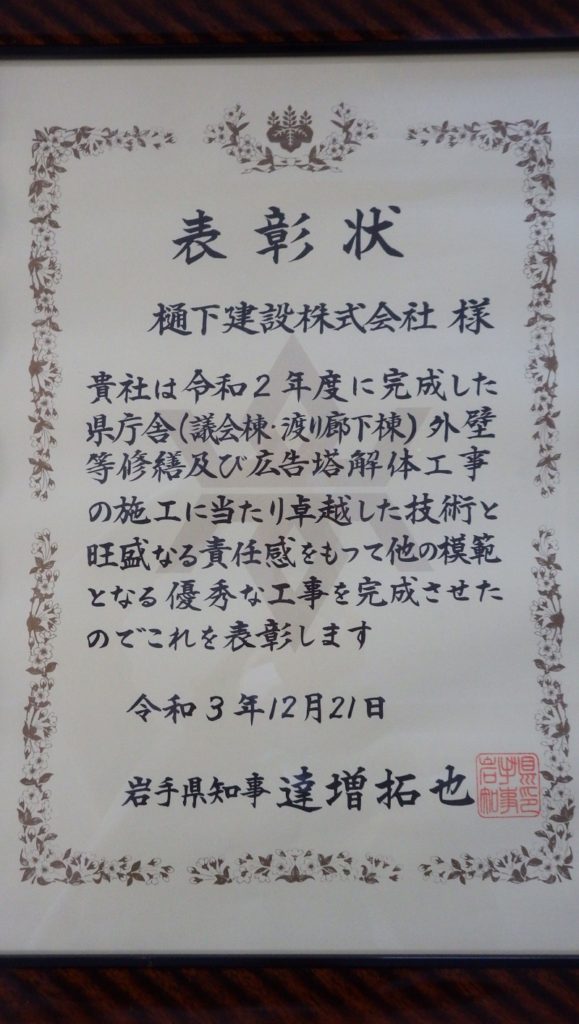 表彰状
樋下建設株式会社 様
貴社は令和2年度に完成した
県庁舎(議会棟・渡り廊下棟)外壁
等修繕及び広告塔解体工事
の施工に当たり卓越した技術と
旺盛なる責任感をもって他の模範
となる優秀な工事を完成させた
のでこれを表彰します
令和3年12月21日
岩手県知事 達増拓也
岩手県知事印